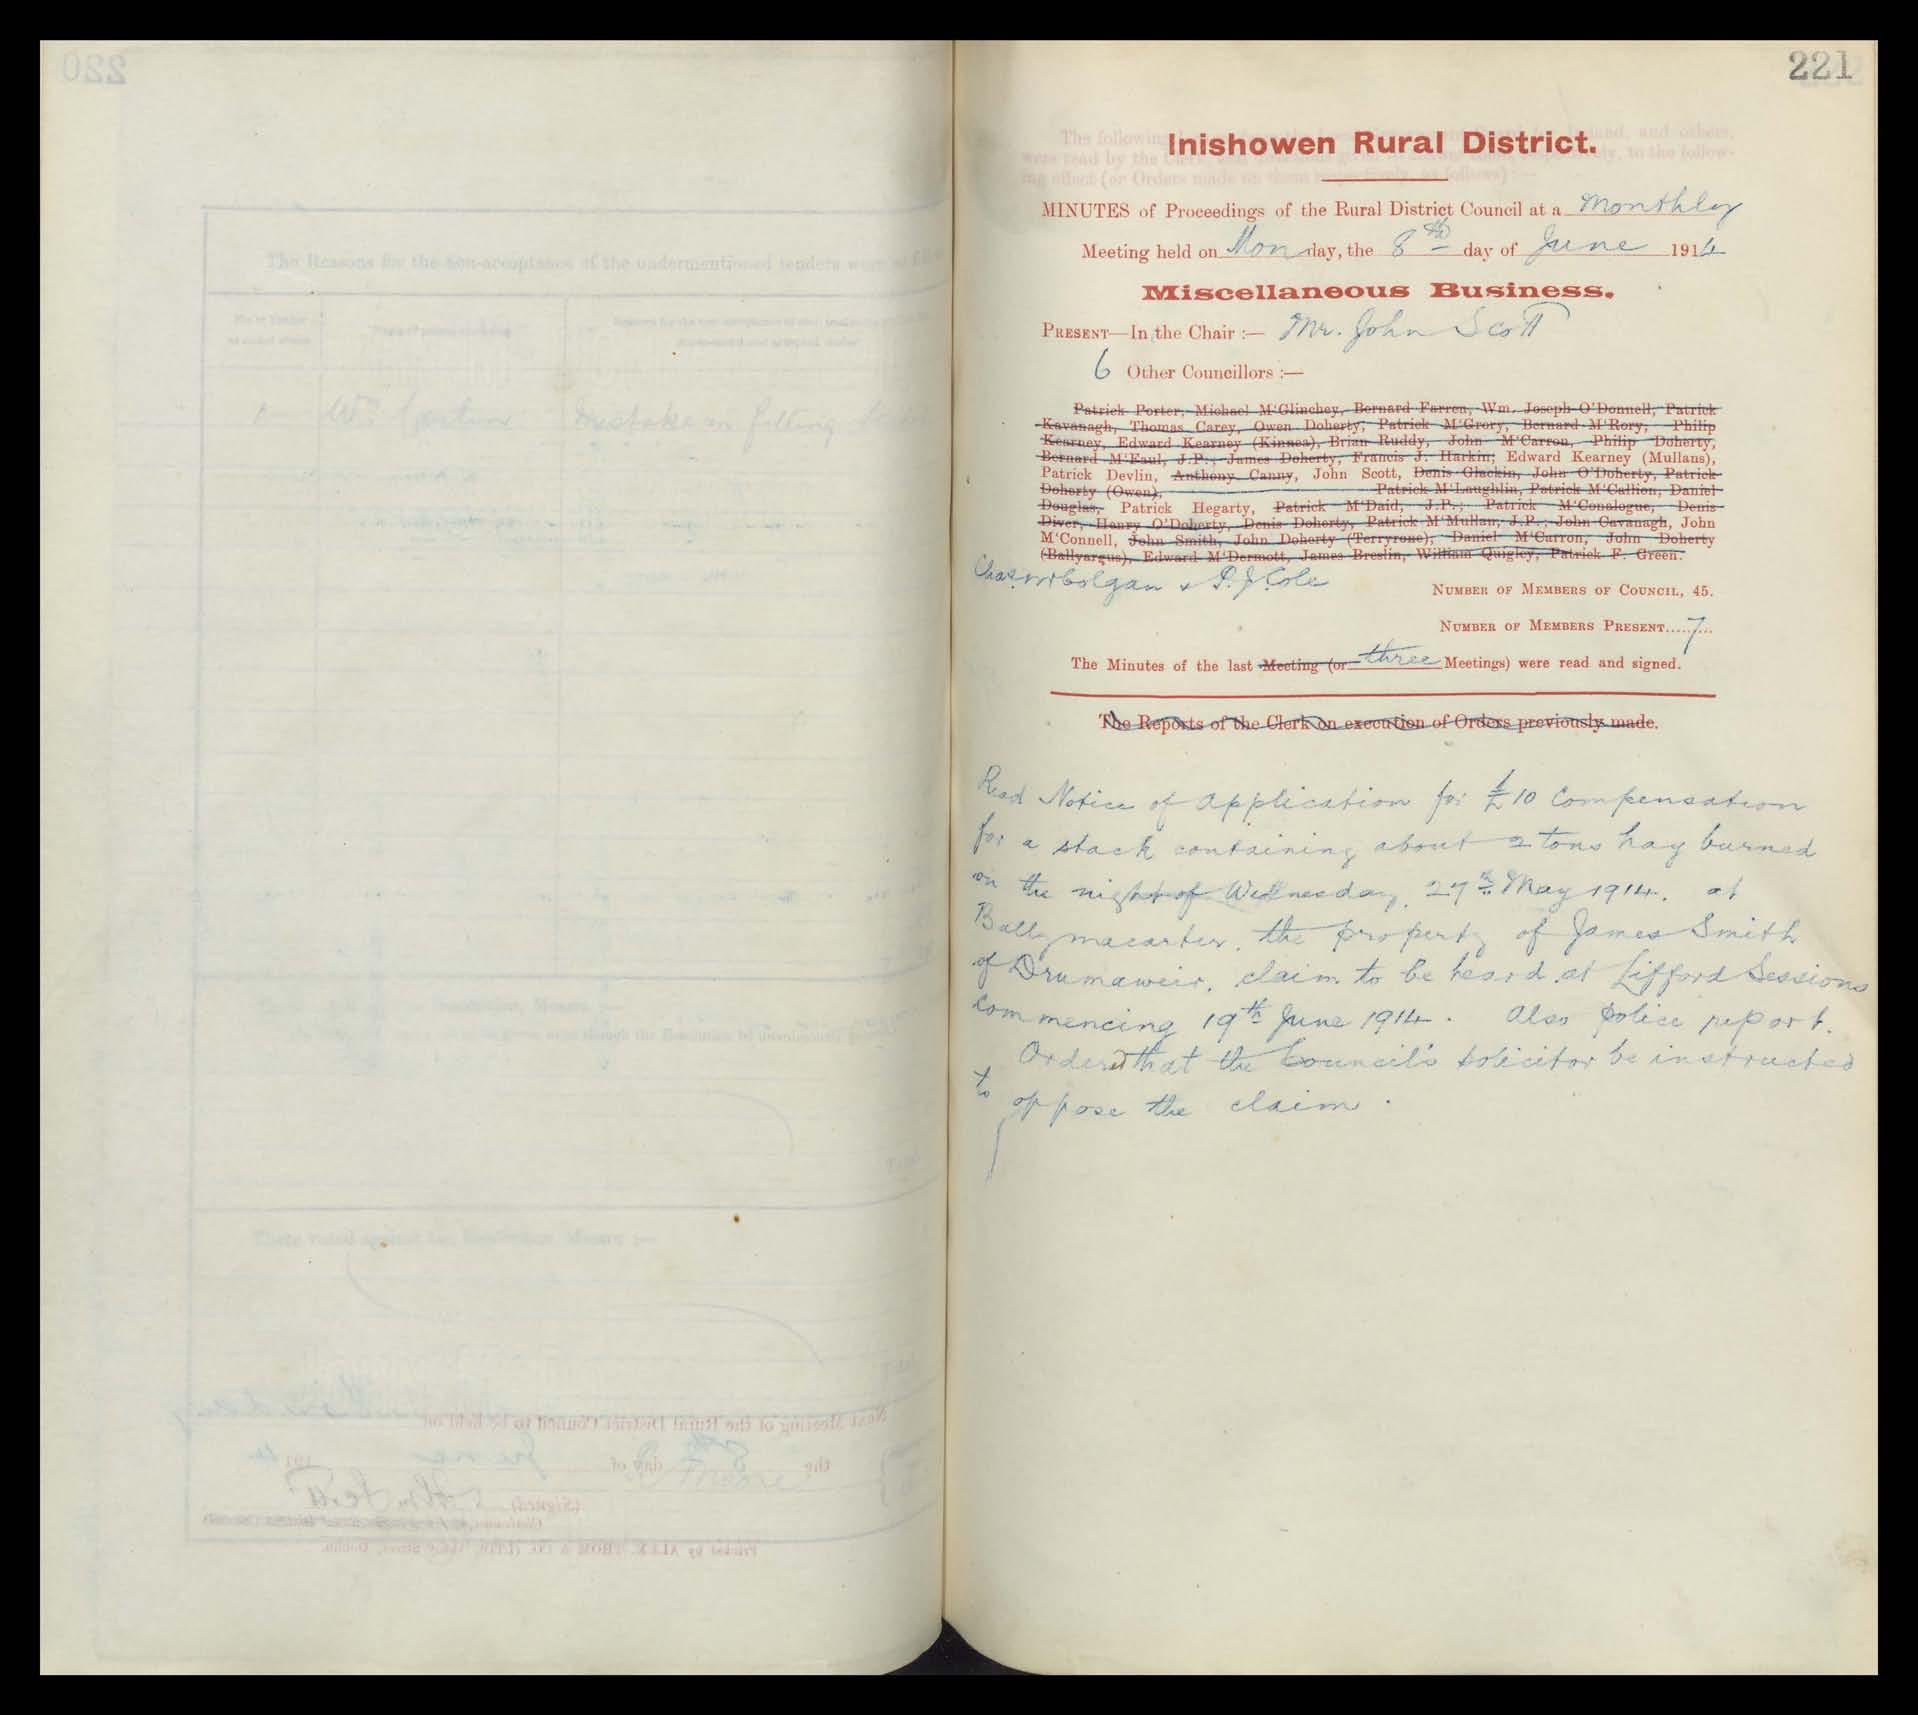 221
Inishowen Rural District.
MINUTES of Proceedings of the Rural District Council at a Monthly
Meeting held on Monday, the 8th day of June 1914
Miscellaneous Business.
PRESENT—In the Chair :— Mr. John Scott
6 Other Councillors :—
Patrick Porter, Michael M'Glinchey, Bernard Farren, Wm. Joseph O'Donnell, Patrick
Kavanagh, Thomas Carey, Owen Doherty, Patrick M'Grory, Bernard M'Rory, Philip
Kearney, Edward Kearney (Kinnea), Brian Ruddy, John M'Carron, Philip Doherty,
Bernard M'Faul, J.P., James Doherty, Francis J. Harkin, Edward Kearney (Mullans),
Patrick Devlin, Anthony Canny, John Scott, Denis Glackin, John O'Doherty, Patrick
Doherty (Owen), Patrick M'Laughlin, Patrick M'Callion, Daniel
Douglas, Patrick Hegarty, Patrick M'Daid, J.P., Patrick M'Conalogue, Denis
Diver, Henry O'Doherty, Denis Doherty, Patrick M'Mullan, J.P., John Cavanagh, John
M'Connell, John Smith, John Doherty (Terryrone), Daniel M'Carron, John Doherty
(Ballyargus), Edward M'Dermott, James Breslin, William Quigley, Patrick F. Green.
Chas. McColgan & P. J. Cole
NUMBER OF MEMBERS OF COUNCIL, 45.
NUMBER OF MEMBERS PRESENT.....7...
The Minutes of the last Meeting (or three Meetings) were read and signed.
The Reports of the Clerk on execution of Orders previously made.
Read Notice of Application for £10 Compensation
for a stack containing about 2 tons hay burned
on the night of Wednesday, 27th May 1914. at
Ballymacarter, the property of James Smith
of Drumaweir, claim to be heard at Lifford Sessions
commencing 19th June 1914. Also police report.
Ordered that the Council's solicitor be instructed
to oppose the claim.